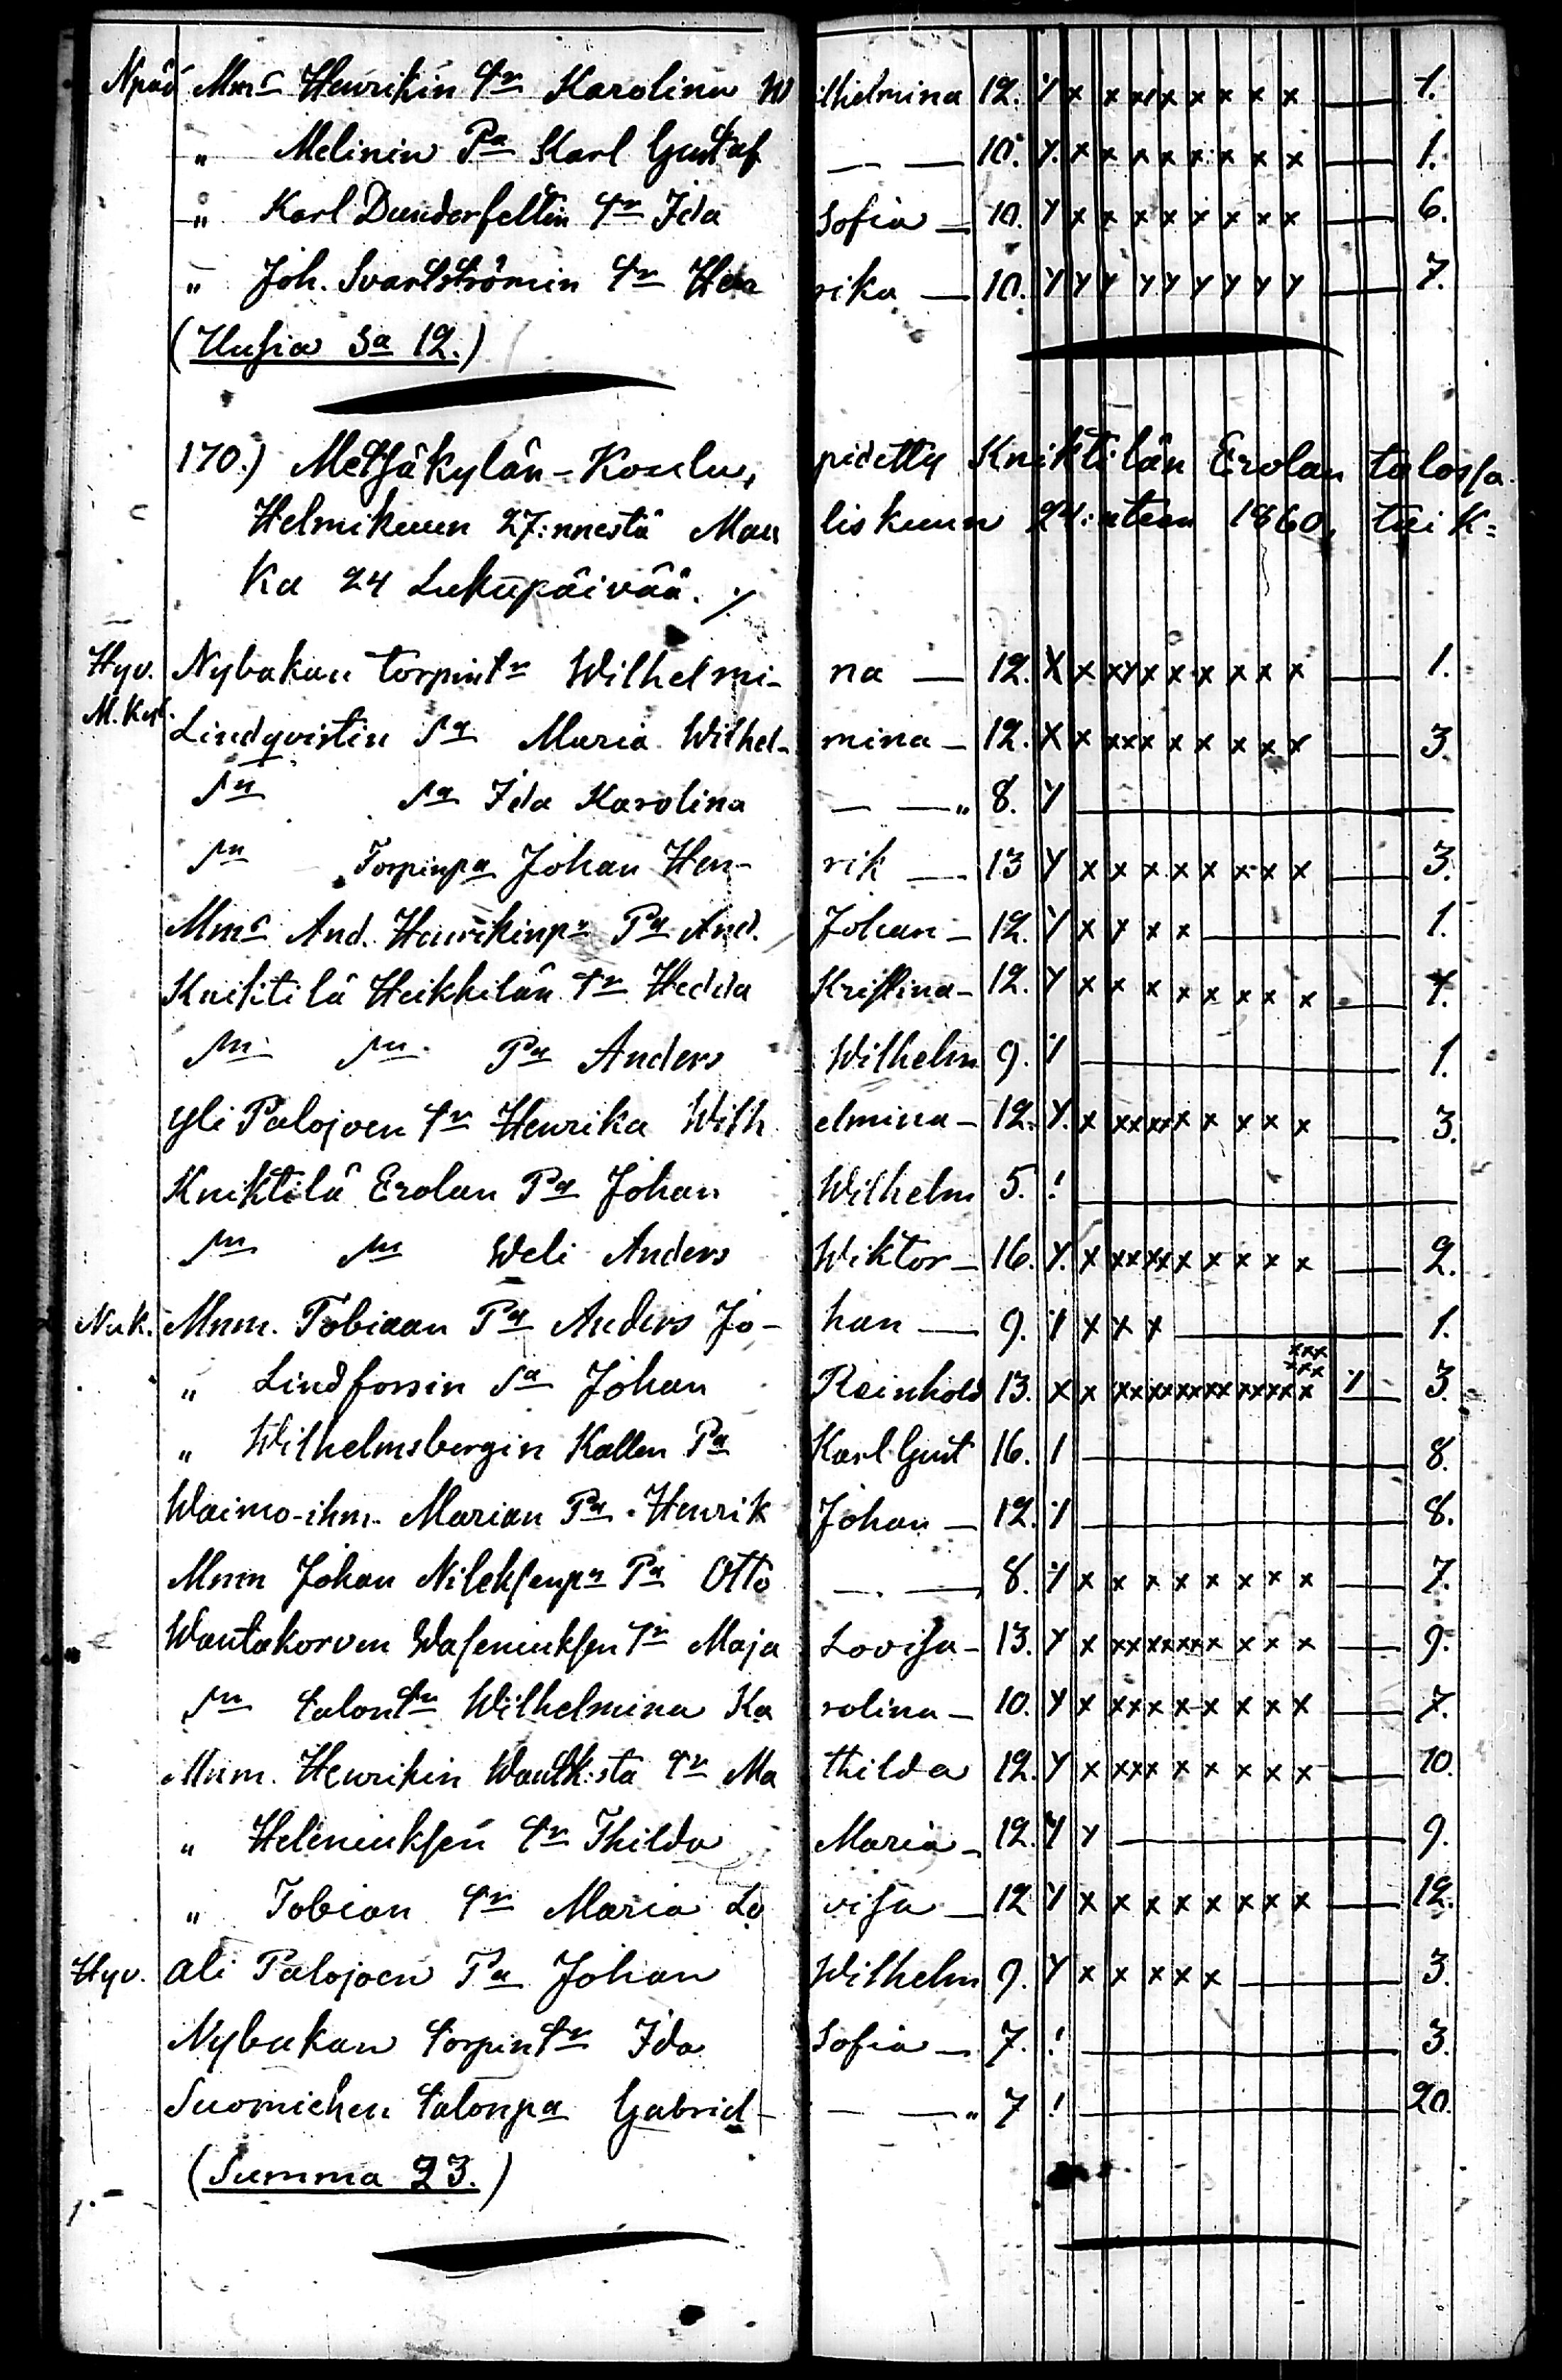 Npää Mmc Henrikin Tr Karolina Wilhelmina 12. 1.
" Melinin Pa Karl Gustaf — — 10. 1.
" Karl Dunderfeltin Tr Ida Sofia — 10. 6.
" Joh. Svartströmin Tr Henrika — 10. 7.
(Usia Sa 12.)
170.) Metsäkylän-Koulu, pidetty Kniktilän Erolan talossa
Helmikuun 27:nnestä Maaliskuun 24:nteen 1860, täik=
Ka 24 Lukupäivää. ./.
Hyv. Nybakan torpintr Wilhelmi- na — 12. X x x x x x x x x x — 1.
M. Kyl. Lindqvistin Sa Maria Wilhel- mina — 12. X x x x x x x x x x — 3.
Sn Sa Ida Karolina — — " 8. Y
Sn Torpinpa Johan Hen- rik — 13 Y x x x x x x x x — 3.
Mmc And. Henrikinpn Pa And. Johan — 12. Y x x x x — 1.
Kniktilä Heikkilän Tr Hedda Kristina — 12. Y x x x x x x x x — 1.
Sn Sn Pa Anders Wilhelm 9. 1.
Yli Palojoen Tr Henrika Wilh elmina — 12. Y. x x x x x x x x x x — 3.
Kniktilä Erolan Pa Johan Wilhelm 5. !
Sn Sn Weli Anders Wiktor — 16. Y. x x x x x x x x x x — 2.
Nuk. Mnm. Tobiaan Pa Anders Jo- han — 9. x x x — 1.
" Lindforsin Sa Johan Reinhold 13. 3.
" Wilhelmsbergin Kallen Pa Karl Gust 16. 8.
Waimo-ihm. Marian Pa Henrik Johan — 12. 8.
Mnm Johan Nileksenpn Pa Otto — — 8. x x x x x x x x — 7.
Wantakorven Waseniuksen Tr Maja Lovisa — 13. 9.
Sn talontr Wilhelmina Ka rolina — 10. 7.
Mnm. Henrikin Wantk:sta Tr Ma thilda 12. 10.
" Heleniuksen Tr Thilda Maria — 12. Y Y — 9.
" Tobian Tr Maria Lo visa — 12 Y x x x x x x x x — 12.
Hyv. ali Palojoen Pa Johan Wilhelm 9. Y x x x x x — 3.
Nybakan torpintr Ida Sofia — 7. ! — 3.
Suomiehen talonpa Gabriel — — " 7 ! — 20.
(Summa 23.)